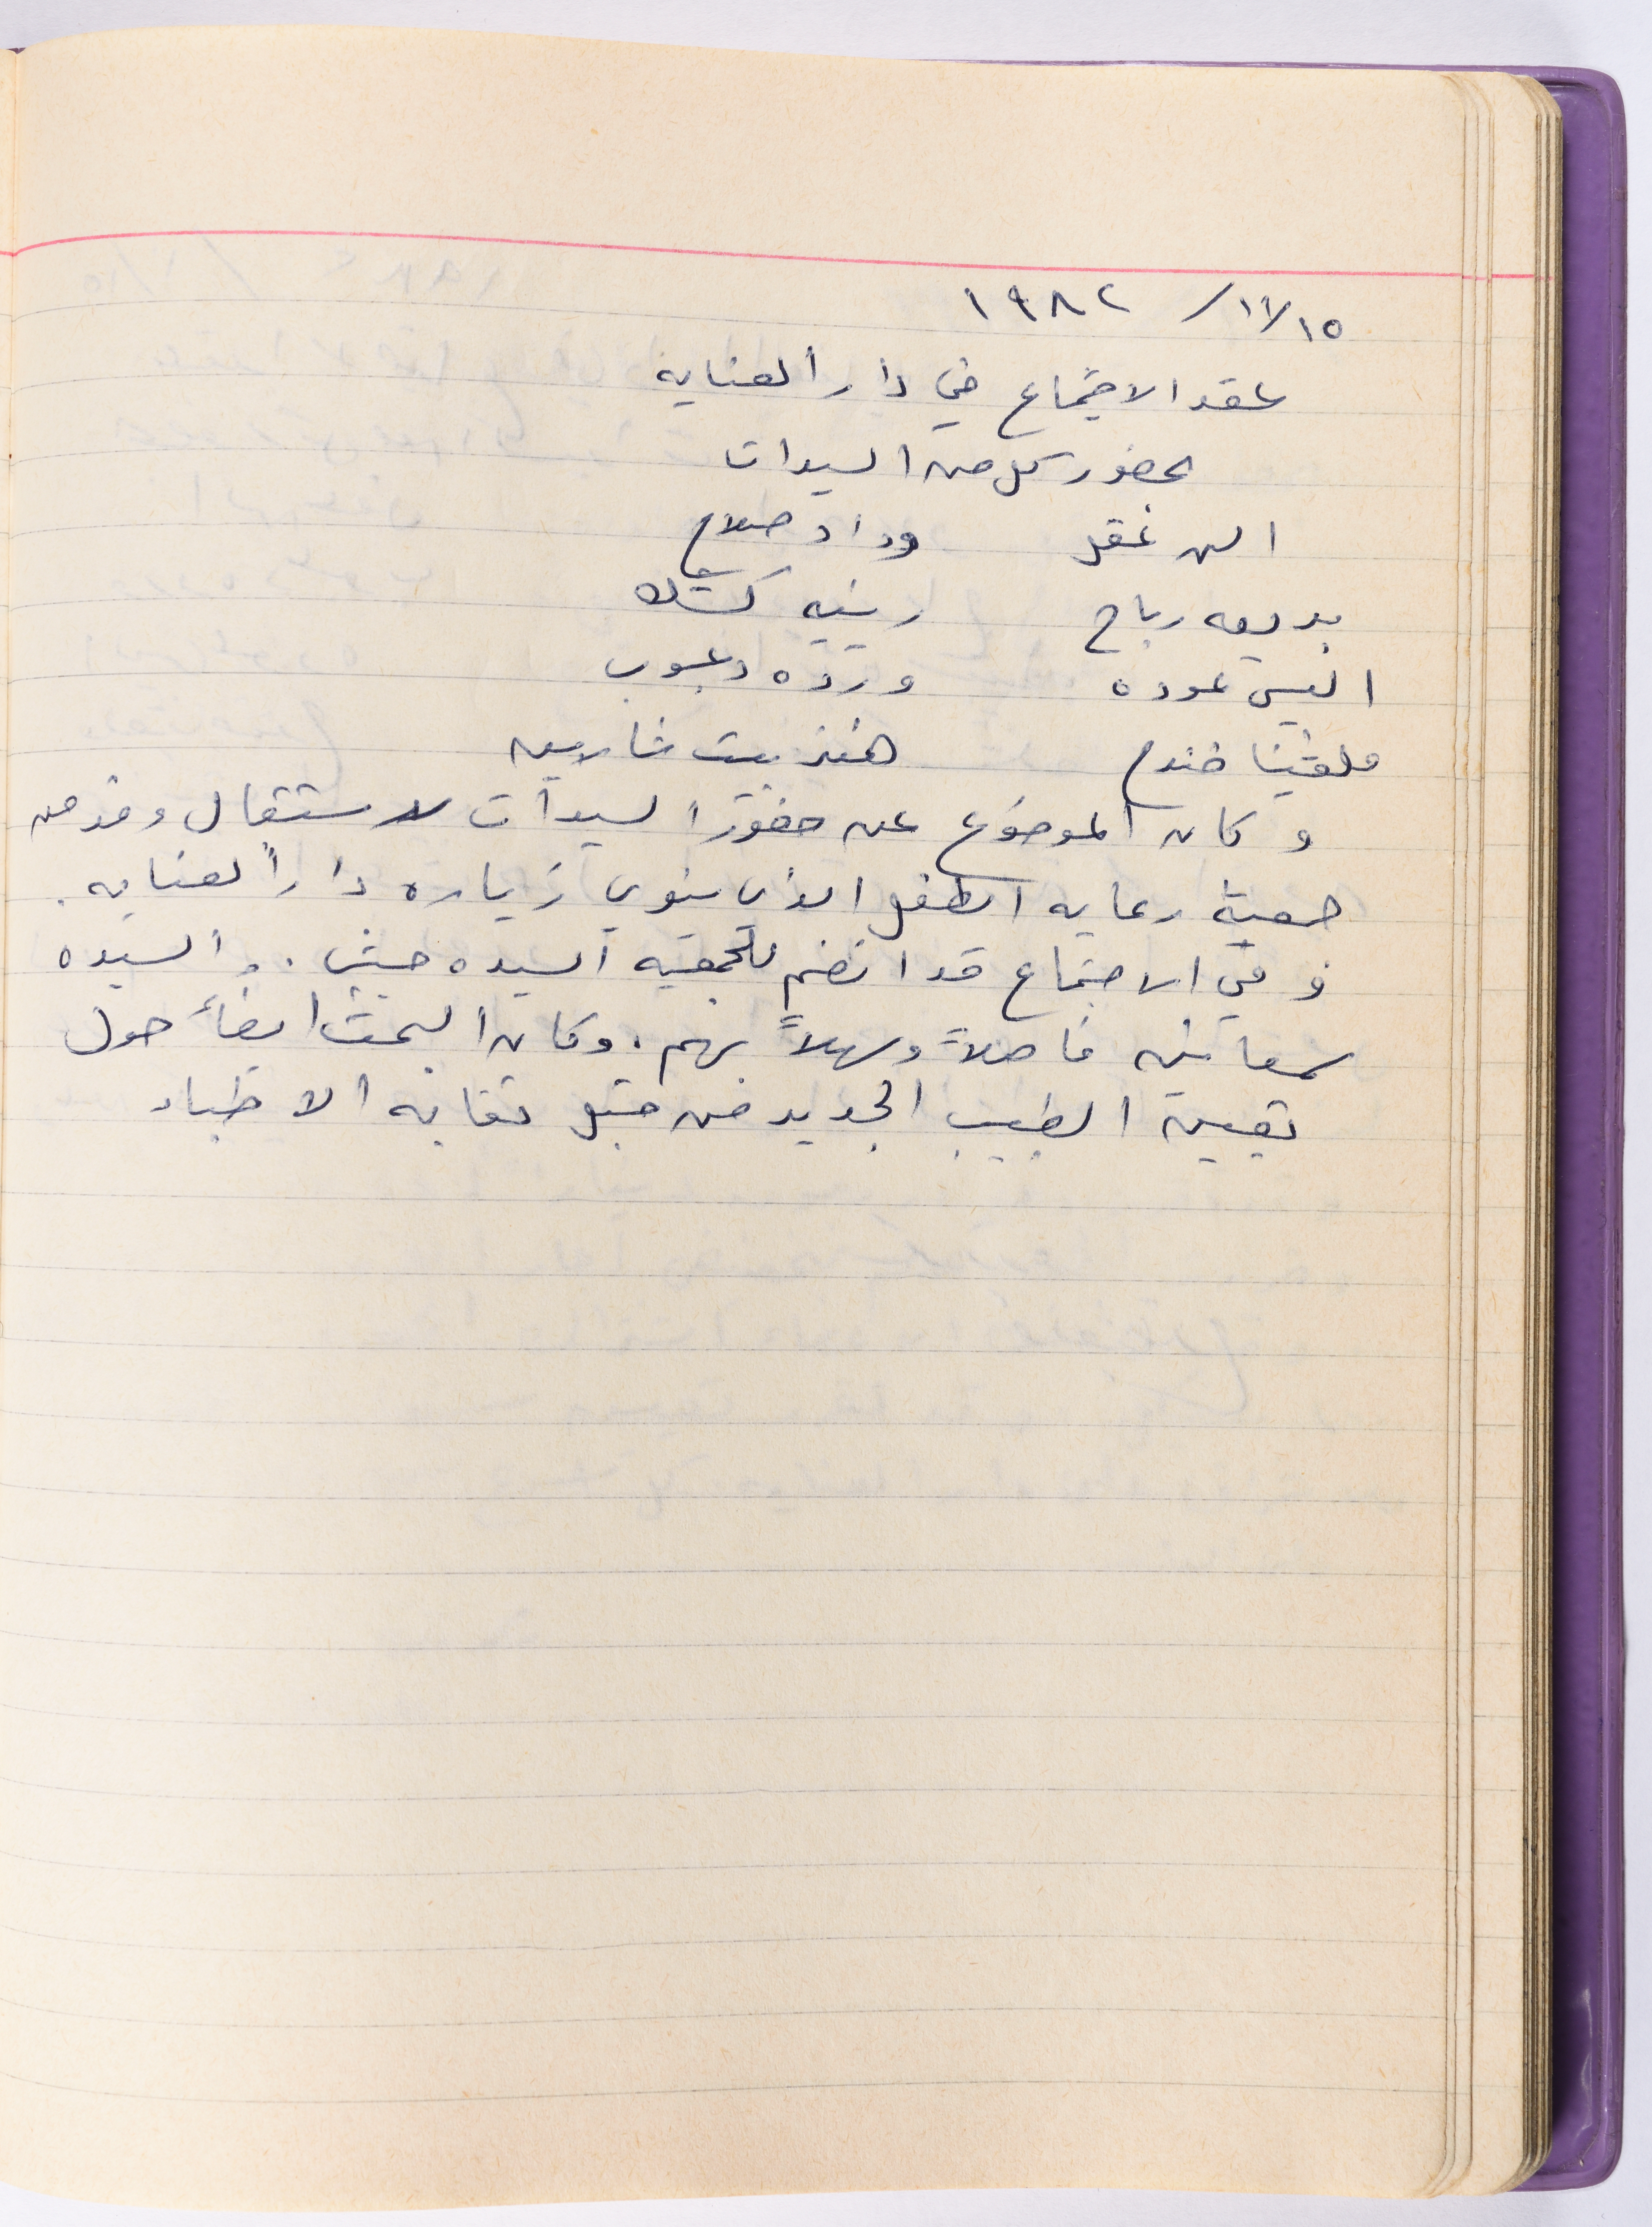 ١٥/١١/ ١٩٨٢
عقد الاجتماع في دار العناية
بحضور كل من السيدات
الن عقل وداد صلاح
بديعه رباح رينيه كتك
انيس عوده ورده دعبوب
ملفينا خندج هنزييت شاربين
وكان الموضوع عن حضور السيدات لاستقبال وفد من
جمعية رعايه الطفل الذي ينوي زياره دار العنايه.
وفي الاجتماع قد انضم للجمعيه السيده حبش. والسيده
سمعا نه فاهلاً وسهلاً بهم. وكان البحث ايضاً حول
تعيين الطبيب الجديد من قبل نقابه الاطباء